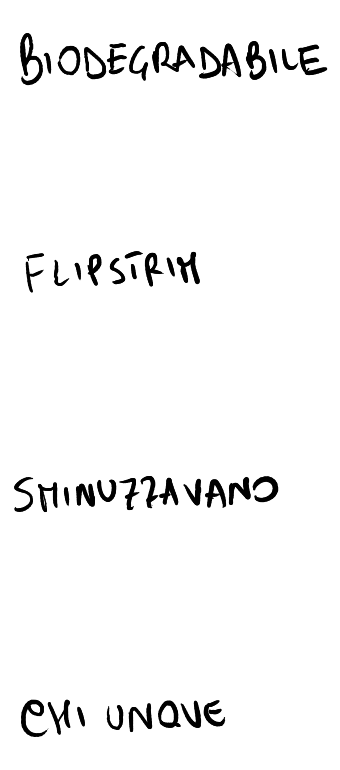 BIODEGRADABILE
FLIPSTRIM
SMINUZZAVANO
CHI UNQUE